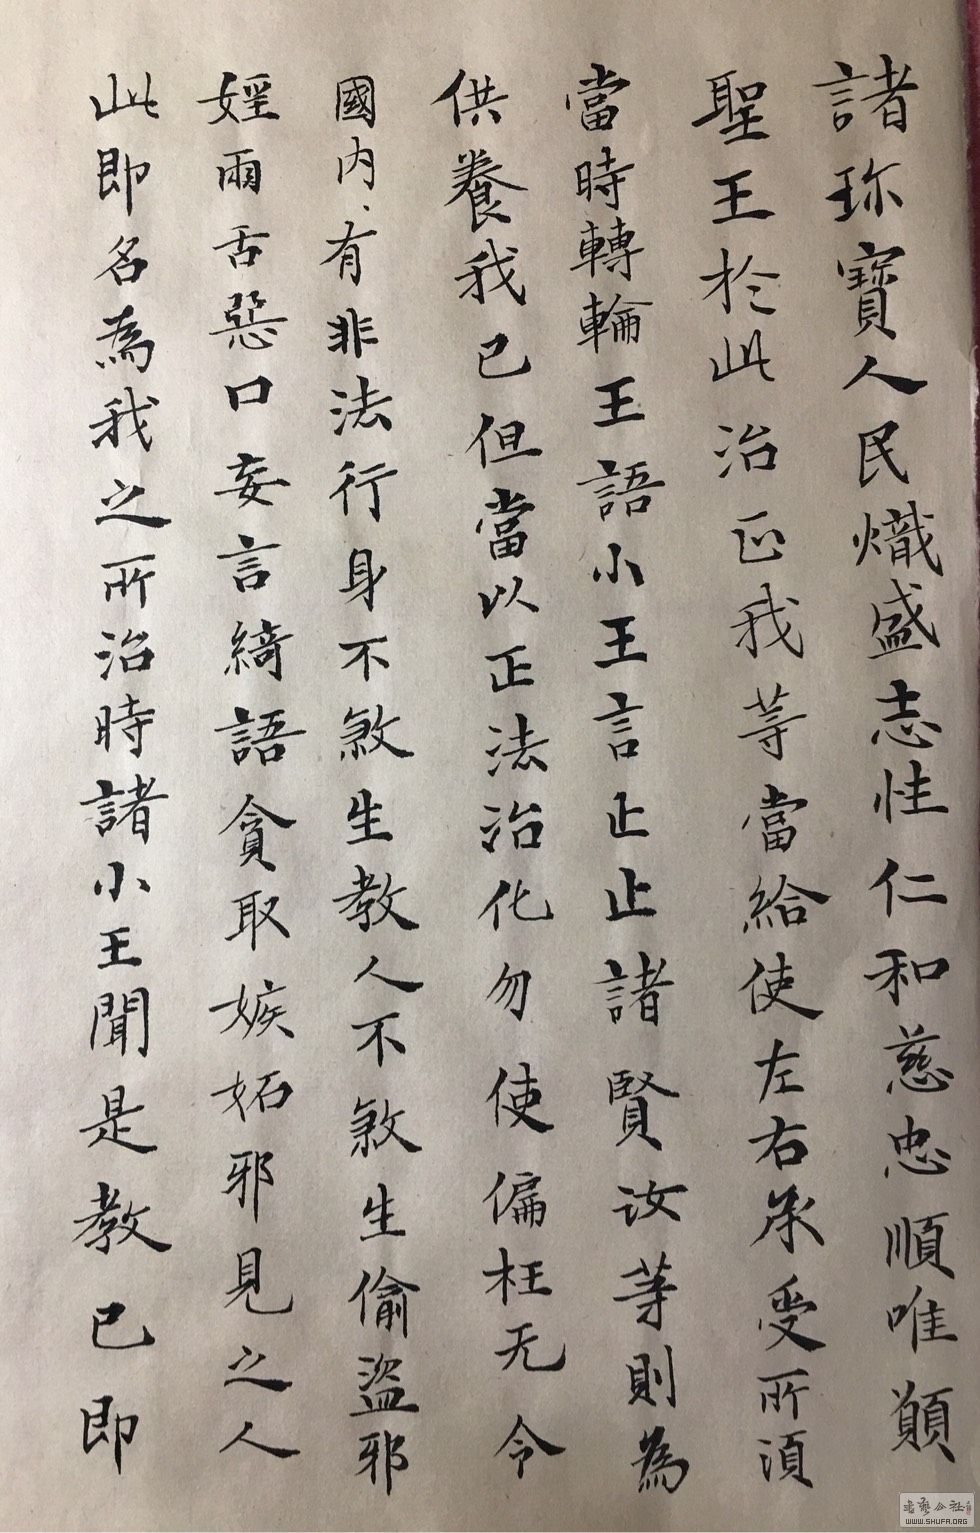 諸珎寶人民熾盛志性仁和慈忠順唯願
聖王於此治正我等當給使左右承受所湏
當時轉輪王語小王言止止諸賢汝等則為
供養我已但當以正法治化勿使偏枉无令
國内有非法行身不煞生教人不煞生偷盜邪
婬兩舌惡口妄言綺語貪取嫉妬邪見之人
此即名為我之所治時諸小王聞是教已即
書藝公社
WWW.SHUFA.ORG